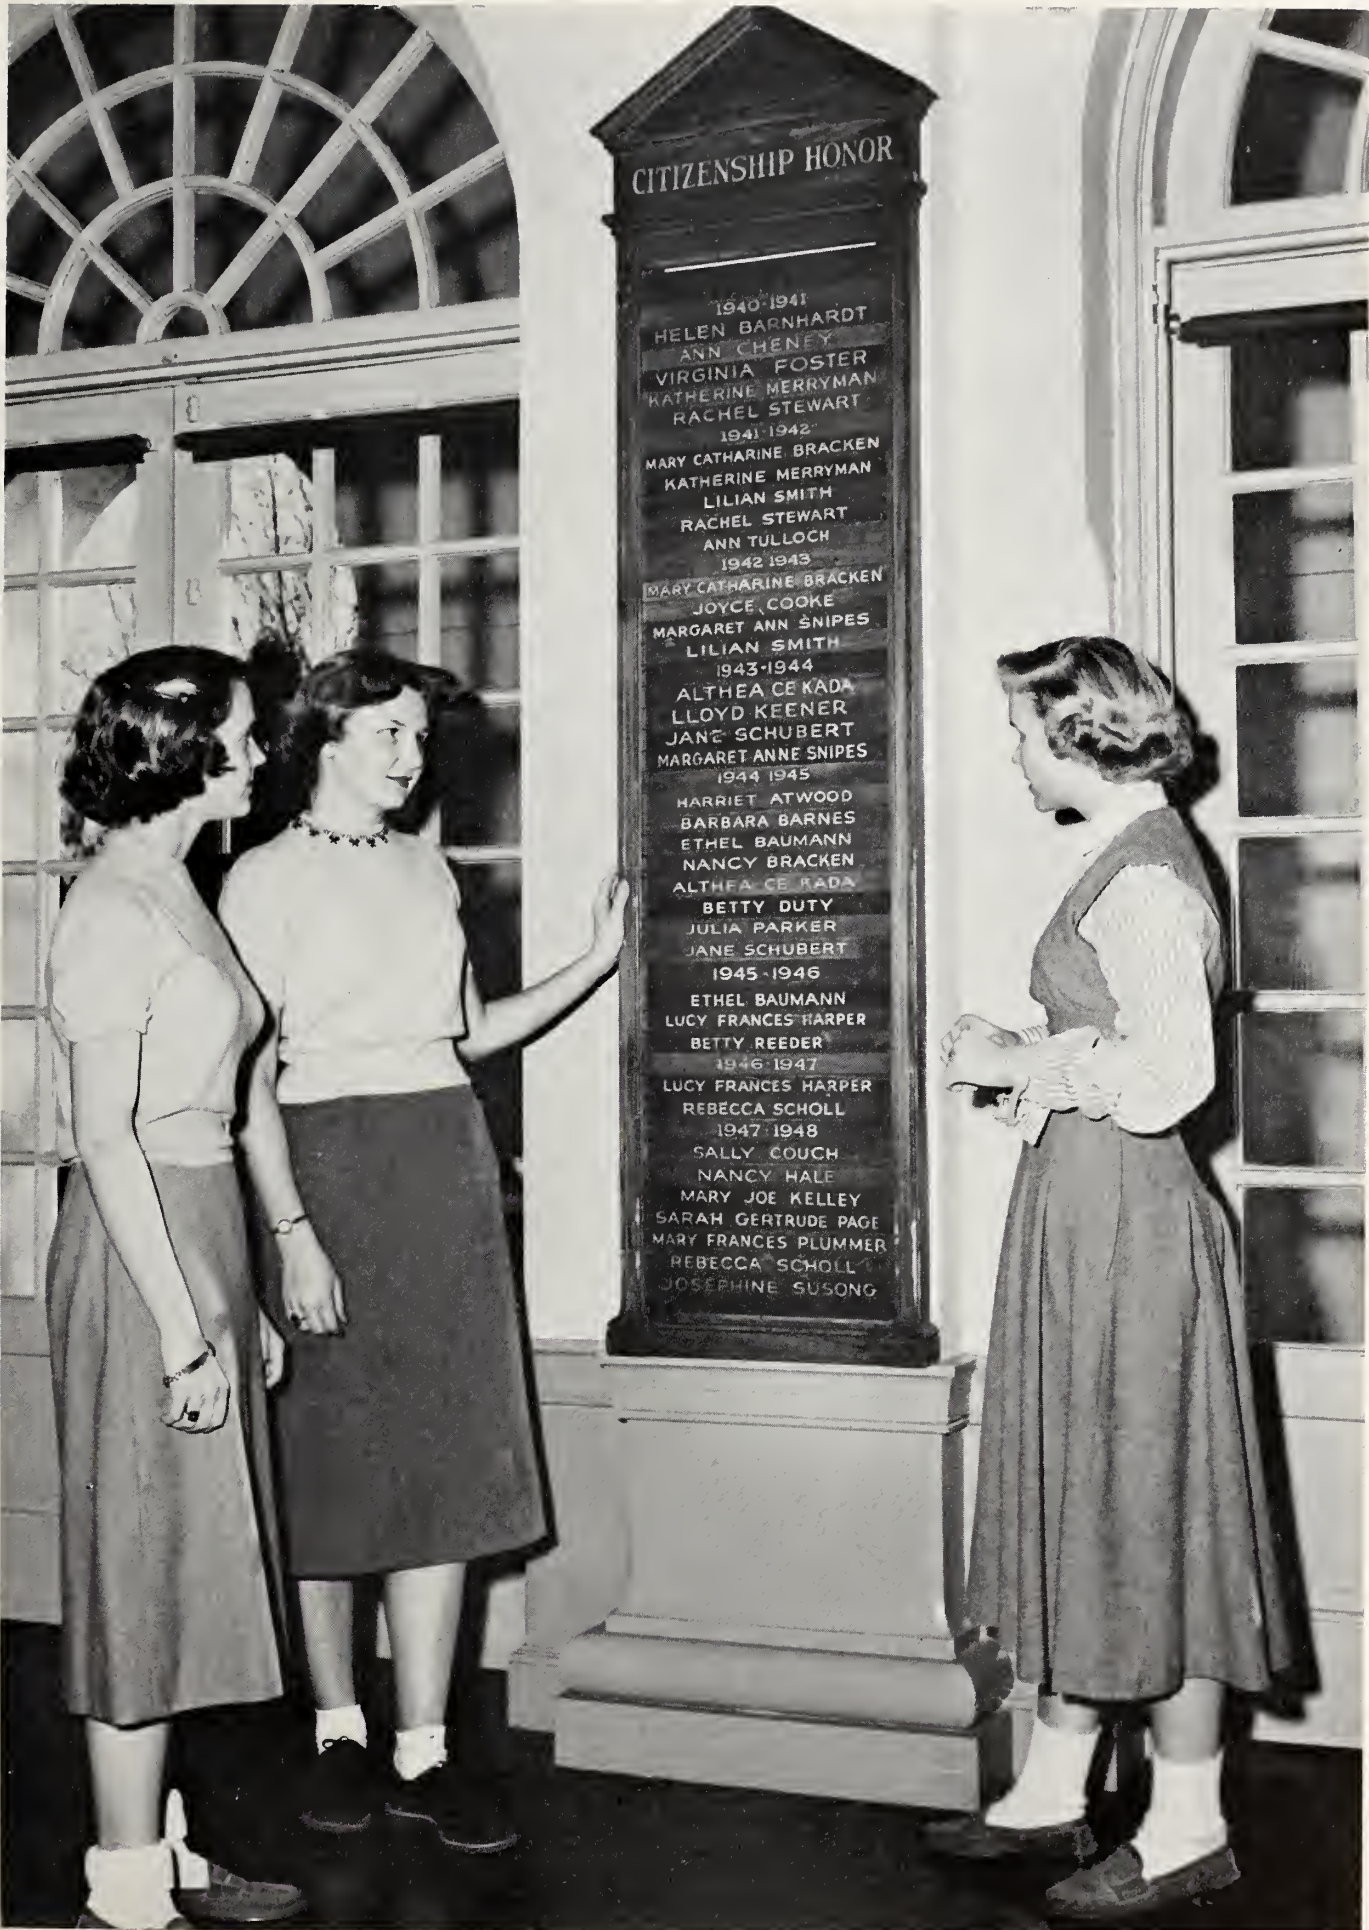 CITIZENSHIP HONOR
1940-1941
HELEN BARNHARDT
ANN CHENEY
VIRGINIA FOSTER
KATHERINE MERRYMAN
RACHEL STEWART
1941-1942
MARY CATHARINE BRACKEN
KATHERINE MERRYMAN
LILIAN SMITH
RACHEL STEWART
ANN TULLOCH
1942 1943
MARY CATHARINE BRACKEN
JOYCE COOKE
MARGARET ANN SNIPES
LILIAN SMITH
1943-1944
ALTHEA CE KADA
LLOYD KEENER
JANE SCHUBERT
MARGARET ANNE SNIPES
1944 1945
HARRIET ATWOOD
BARBARA BARNES
ETHEL BAUMANN
NANCY BRACKEN
ALTHEA CE KADA
BETTY DUTY
JULIA PARKER
JANE SCHUBERT
1945-1946
ETHEL BAUMANN
LUCY FRANCES HARPER
BETTY REEDER
1946-1947
LUCY FRANCES HARPER
REBECCA SCHOLL
1947-1948
SALLY COUCH
NANCY HALE
MARY JOE KELLEY
SARAH GERTRUDE PAGE
MARY FRANCES PLUMMER
REBECCA SCHOLL
JOSEPHINE SUSONG